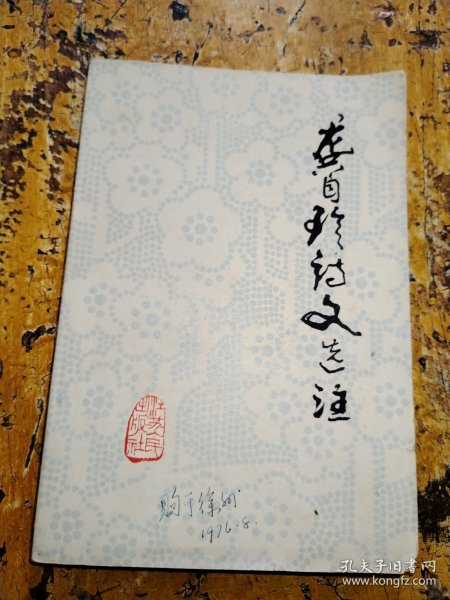 龚自珍诗文选注
江苏人民
出版社
购于徐州
1976.8.
孔夫子旧书网
www.kongfz.com